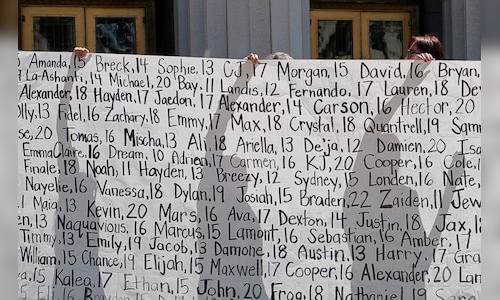 Amanda,15 Breck,14 Sophie,13 CJ,17 Morgan,15 David,16 Bryan,
La-Ashanti,14 Michael,20 Bay,11 Landis,12 Fernando,17 Lauren,18 De
Alexander,18 Hayden,17 Jaedon,17 Alexander,14 Carson,16 Hector,20
lly,13 Fidel,16 Zachary,18 Emmy,17 Max,18 Crystal,18 Quantrell,19 Sam
se,20 Tomas,16 Mischa,13 Ali,18 Ariella,13 De'ja,12 Damien,20 Isa
EmmaClaire,16 Dream,10 Adrien,17 Carmen,16 KJ,20 Cooper,16 Cole,1
Finale,18 Noah,11 Hayden,13 Breezy,12 Sydney,15 Londen,16 Nate,
Nayelie,16 Vanessa,18 Dylan,19 Josiah,15 Braden,22 Zaiden,11 Jew
Maia,13 Kevin,20 Mars,16 Ava,17 Dexton,14 Justin,18 Jax,1
n,13 Naquavious,16 Marcus,15 Lamont,16 Sebastian,16 Amber,17
Timmy,13 Emily,19 Jacob,13 Damone,18 Austin,13 Harry,17 Gra
William,15 Chance,19 Elijah,15 Maxwell,17 Cooper,16 Alexander,20 Lan
a,15 Kalea,17 Ethan,15 John,20 Frog,18 Nathaniel,19
15 Eli,16